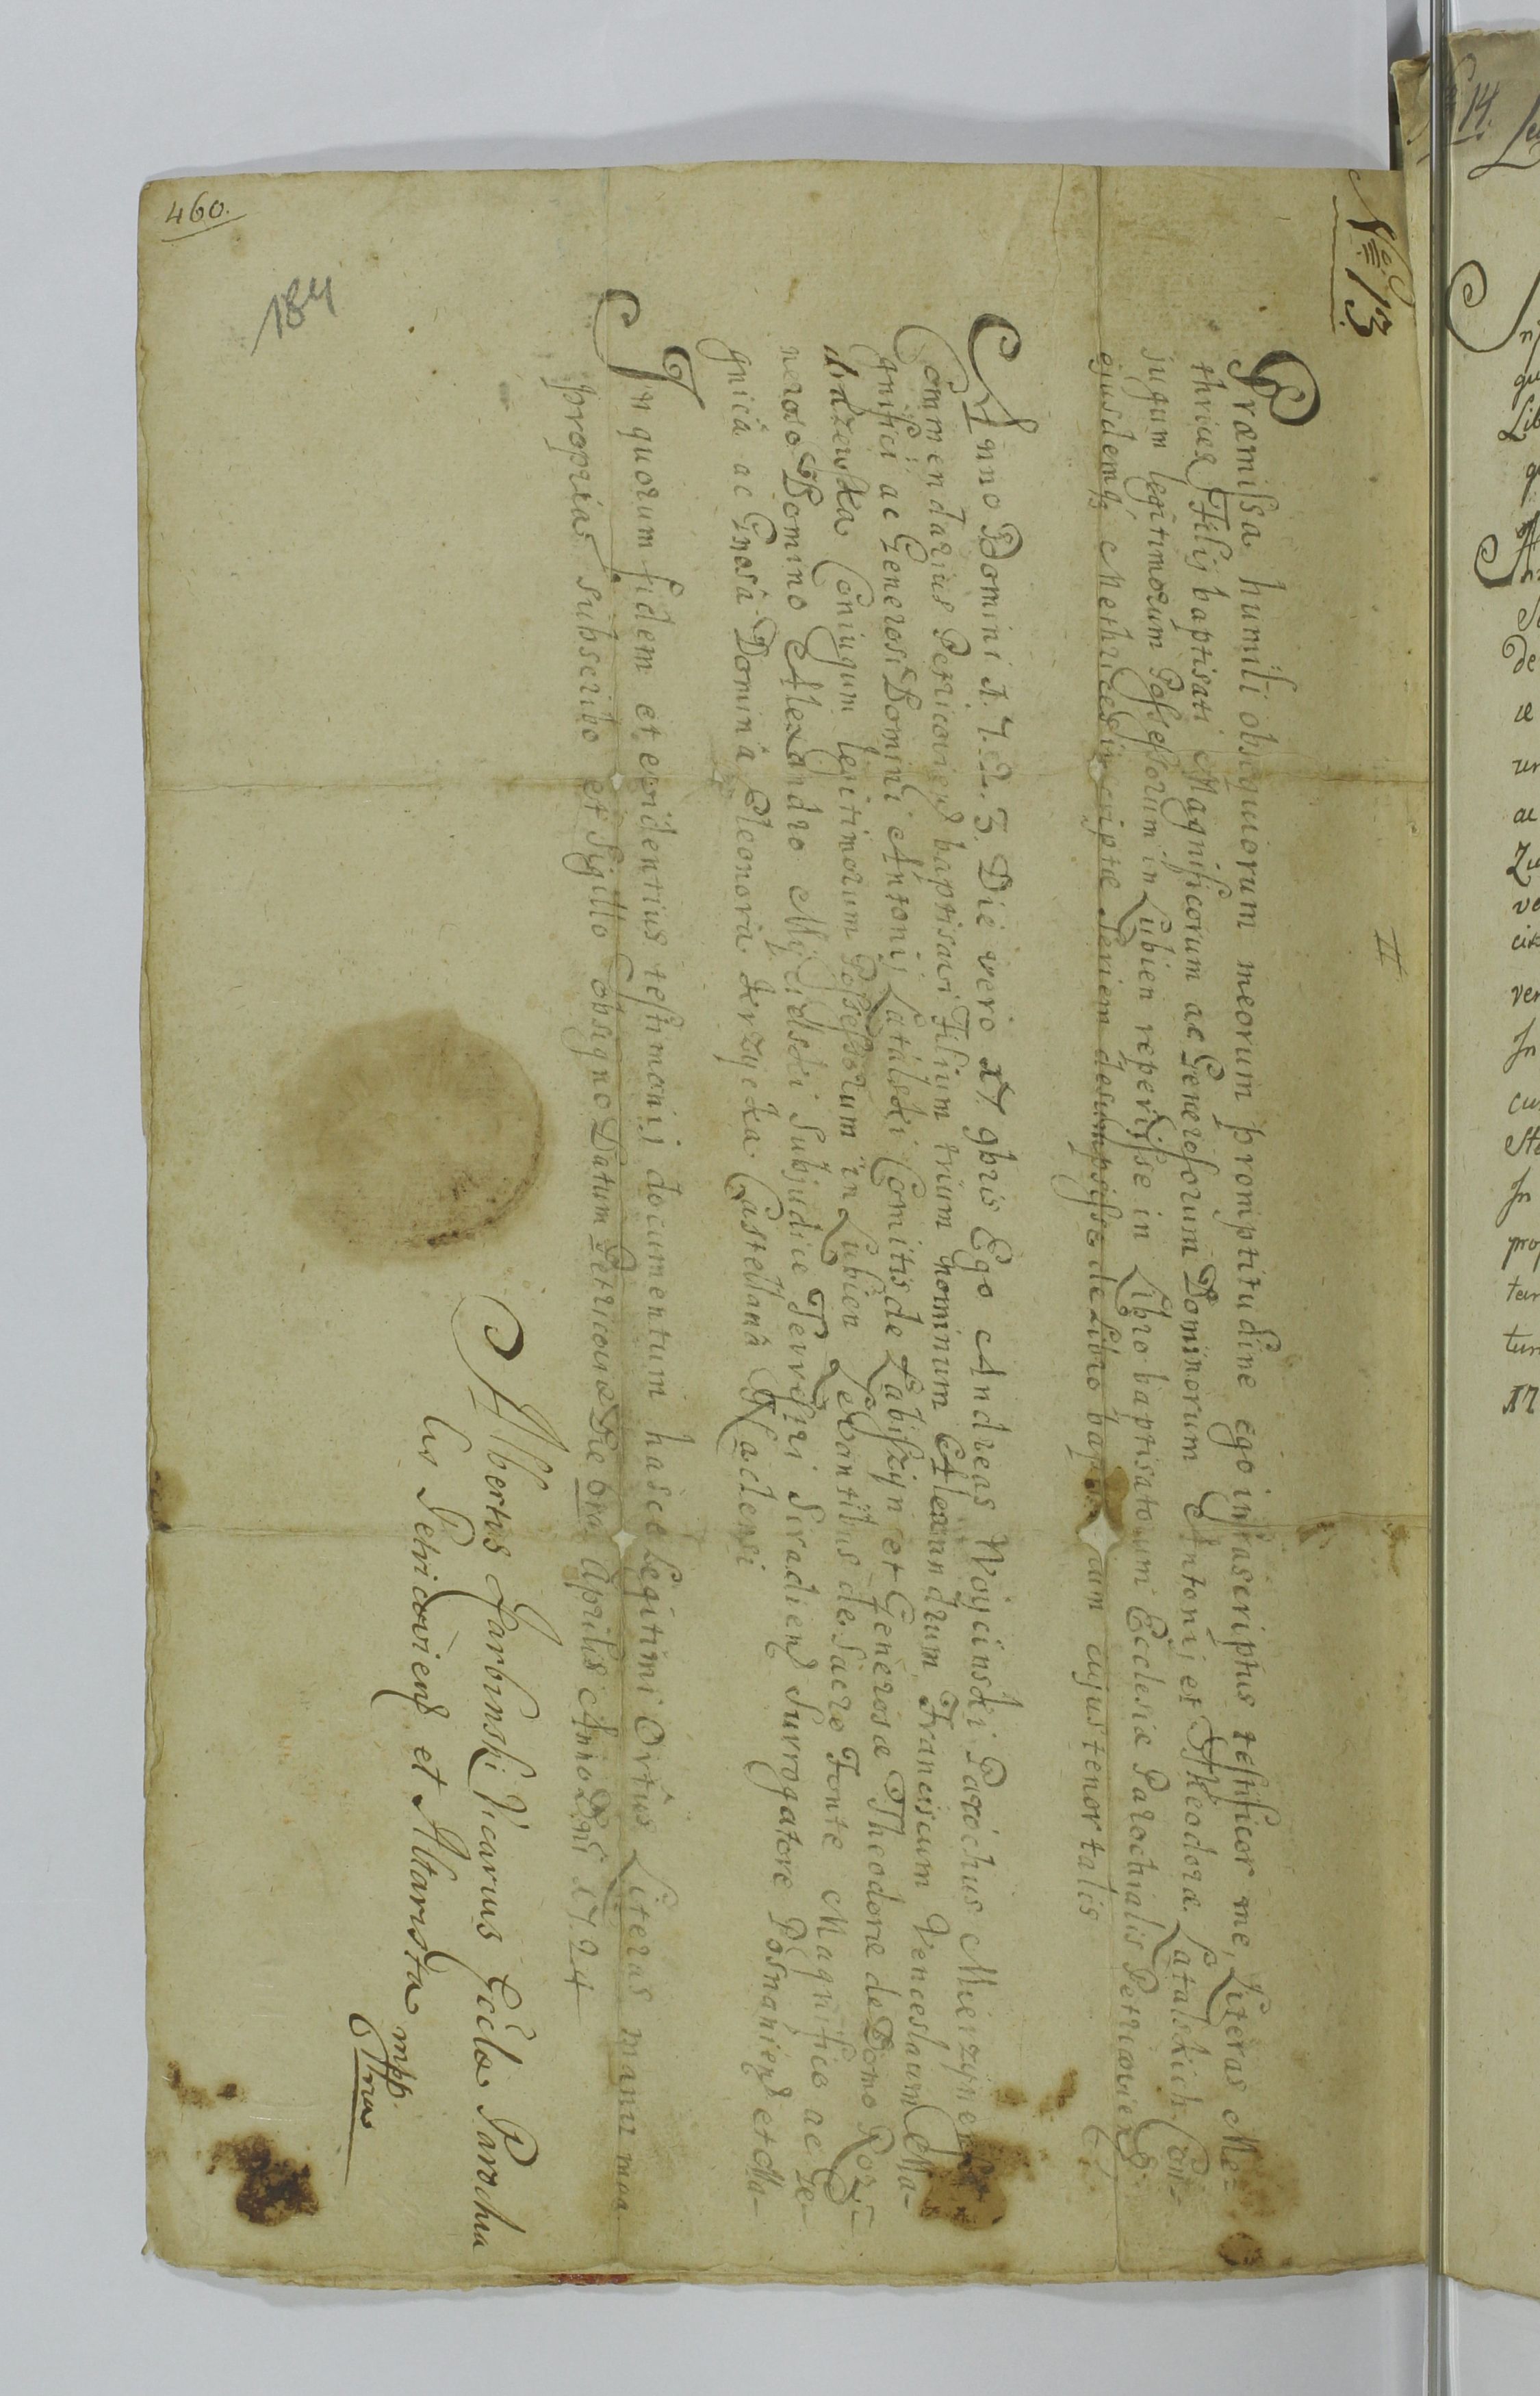 No 13
Præmissa humili obsequiorum meorum promptitudine ego infrascriptus testificor me, Literas Me-
thricæ Filij baptisati Magnificorum ac Generosorum Dominorum Antonij et Theodoræ Latalskich Con-
jugum legitimorum Possessorum in Lubien reperijsse in Libro baptisatorum Ecclesiæ Parochialis Petricovien
ejusdemq Methricæ inscriptæ Seriem desumpsisse de Libro cum cujus tenor talis
Anno Domini 1.7.2.3. Die vero 17 9bris Ego Andreas Woycinski Parochus Mierzynen
Commendarius Petricovien baptisavi Filium trium nominum Alexandrum Franciscum Venceslaum Ma-
gnifici ac Generosi Domini Antonij Latalski Comitis de Labiszyn et Generosæ Theodoræ de Domo
Coniugum legitimorum Possessorum in Lubien Levantibus de Sacro Fonte Magnifico ac Ge-
neroso Domino Alexandro Subjudice Terrestri Siradien Surrogatore Posnanien et Ma-
gnicâ ac Gnosâ Dominâ Eleonora Castellanâ Naclensi
In quorum fidem et evidentius testimonij documentum hasce Legitimi Ortûs Literas manu mea
propria subscribo et Sigillo obsigno Datum Petricoviæ Die Aprilis Anno Dni 1724
Albertus Garbinski Vicarius Eccla Parochia
lis Petricovien et Altarista mpp
460.
184
14.